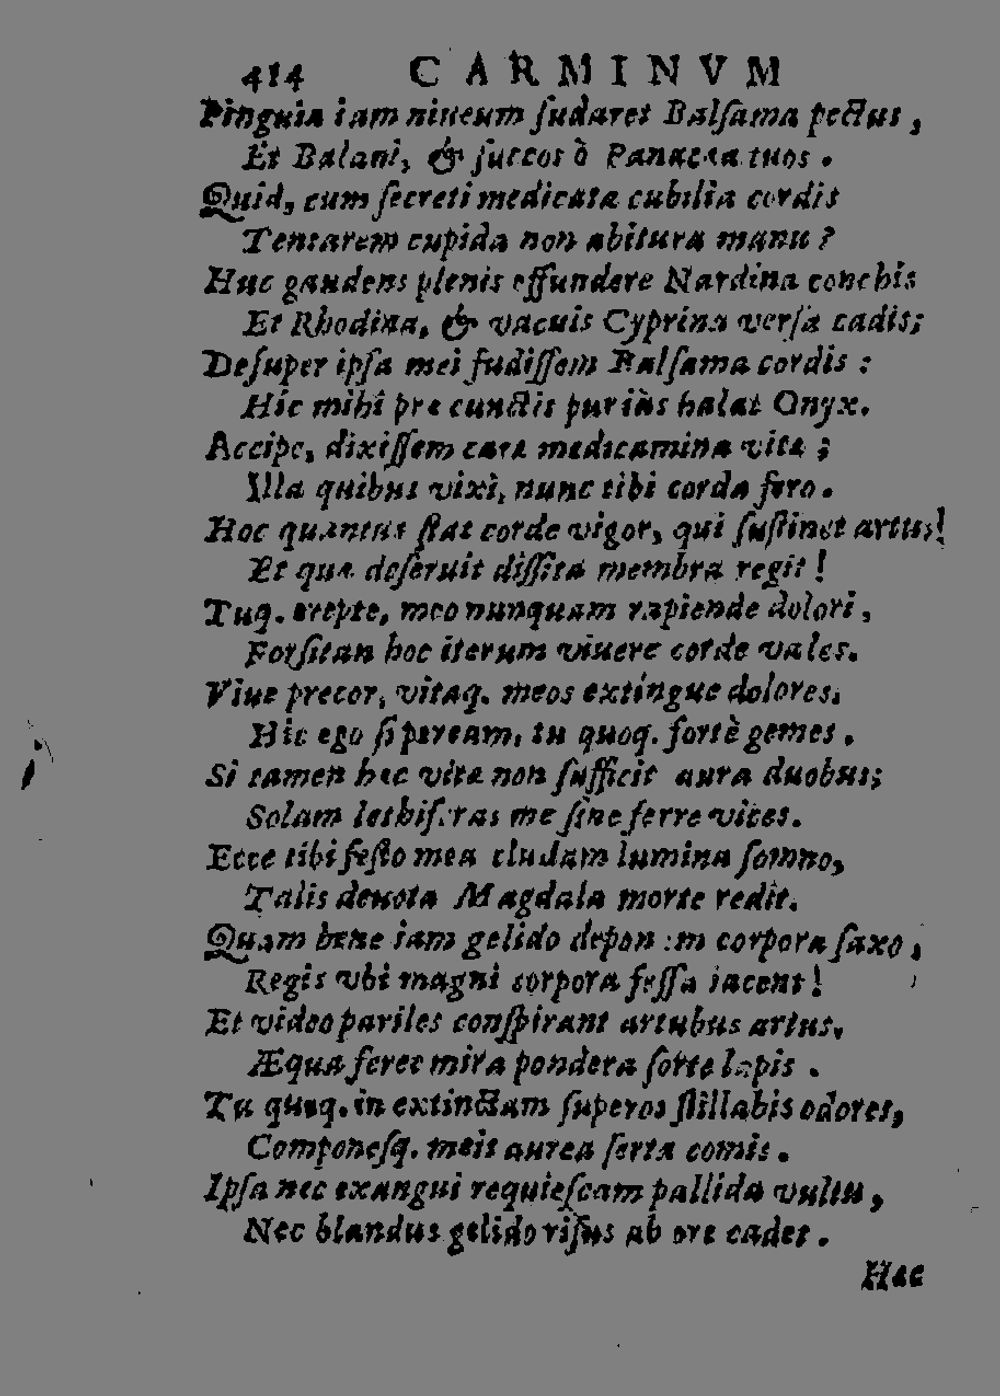 414 CARMINVM
Pinguia iam niueum ſudaret Balſama pectus,
Et Balani, & ſuccos ò Panacea tuos.
Quid, cum ſecreti medicata cubilia cordis
Tentarem cupida non abitura manu?
Huc gaudens plenis effundere Nardina conchis
Et Rhodina, & vacuis Cyprina verſa cadis;
Deſuper ipſa mei fudiſſem Balſama cordis:
Hic mihi pre cunctis puriùs halat Onyx.
Accipe, dixiſſem cara medicamina vitæ;
Illa quibus vixi, nunc tibi corda fero.
Hoc quantus ſtat corde vigor, qui ſuſtinet artus!
Et quæ deſeruit diſſita membra regit!
Tuq. erepte, meo nunquam rapiende dolori,
Forſitan hoc iterum viuere corde vales.
Viue precor, vitaq. meos extingue dolores.
Hic ego ſi peream, tu quoq. fortè gemes.
Si tamen hæc vitæ non ſufficit aura duobus;
Solam lethiferas me ſine ferre vices.
Ecce tibi feſto mea cludam lumina ſomno,
Talis deuota Magdala morte redit.
Quam bene iam gelido deponam corpora ſaxo,
Regis vbi magni corpora feſſa iacent!
Et video pariles conſpirant artubus artus,
Æqua feret mira pondera ſorte lapis.
Tu quoq. in extinctam ſuperos ſtillabis odores,
Componeſq. meis aurea ſerta comis.
Ipſa nec exangui requieſcam pallida vultu,
Nec blandus gelido riſus ab ore cadet.
Hæc